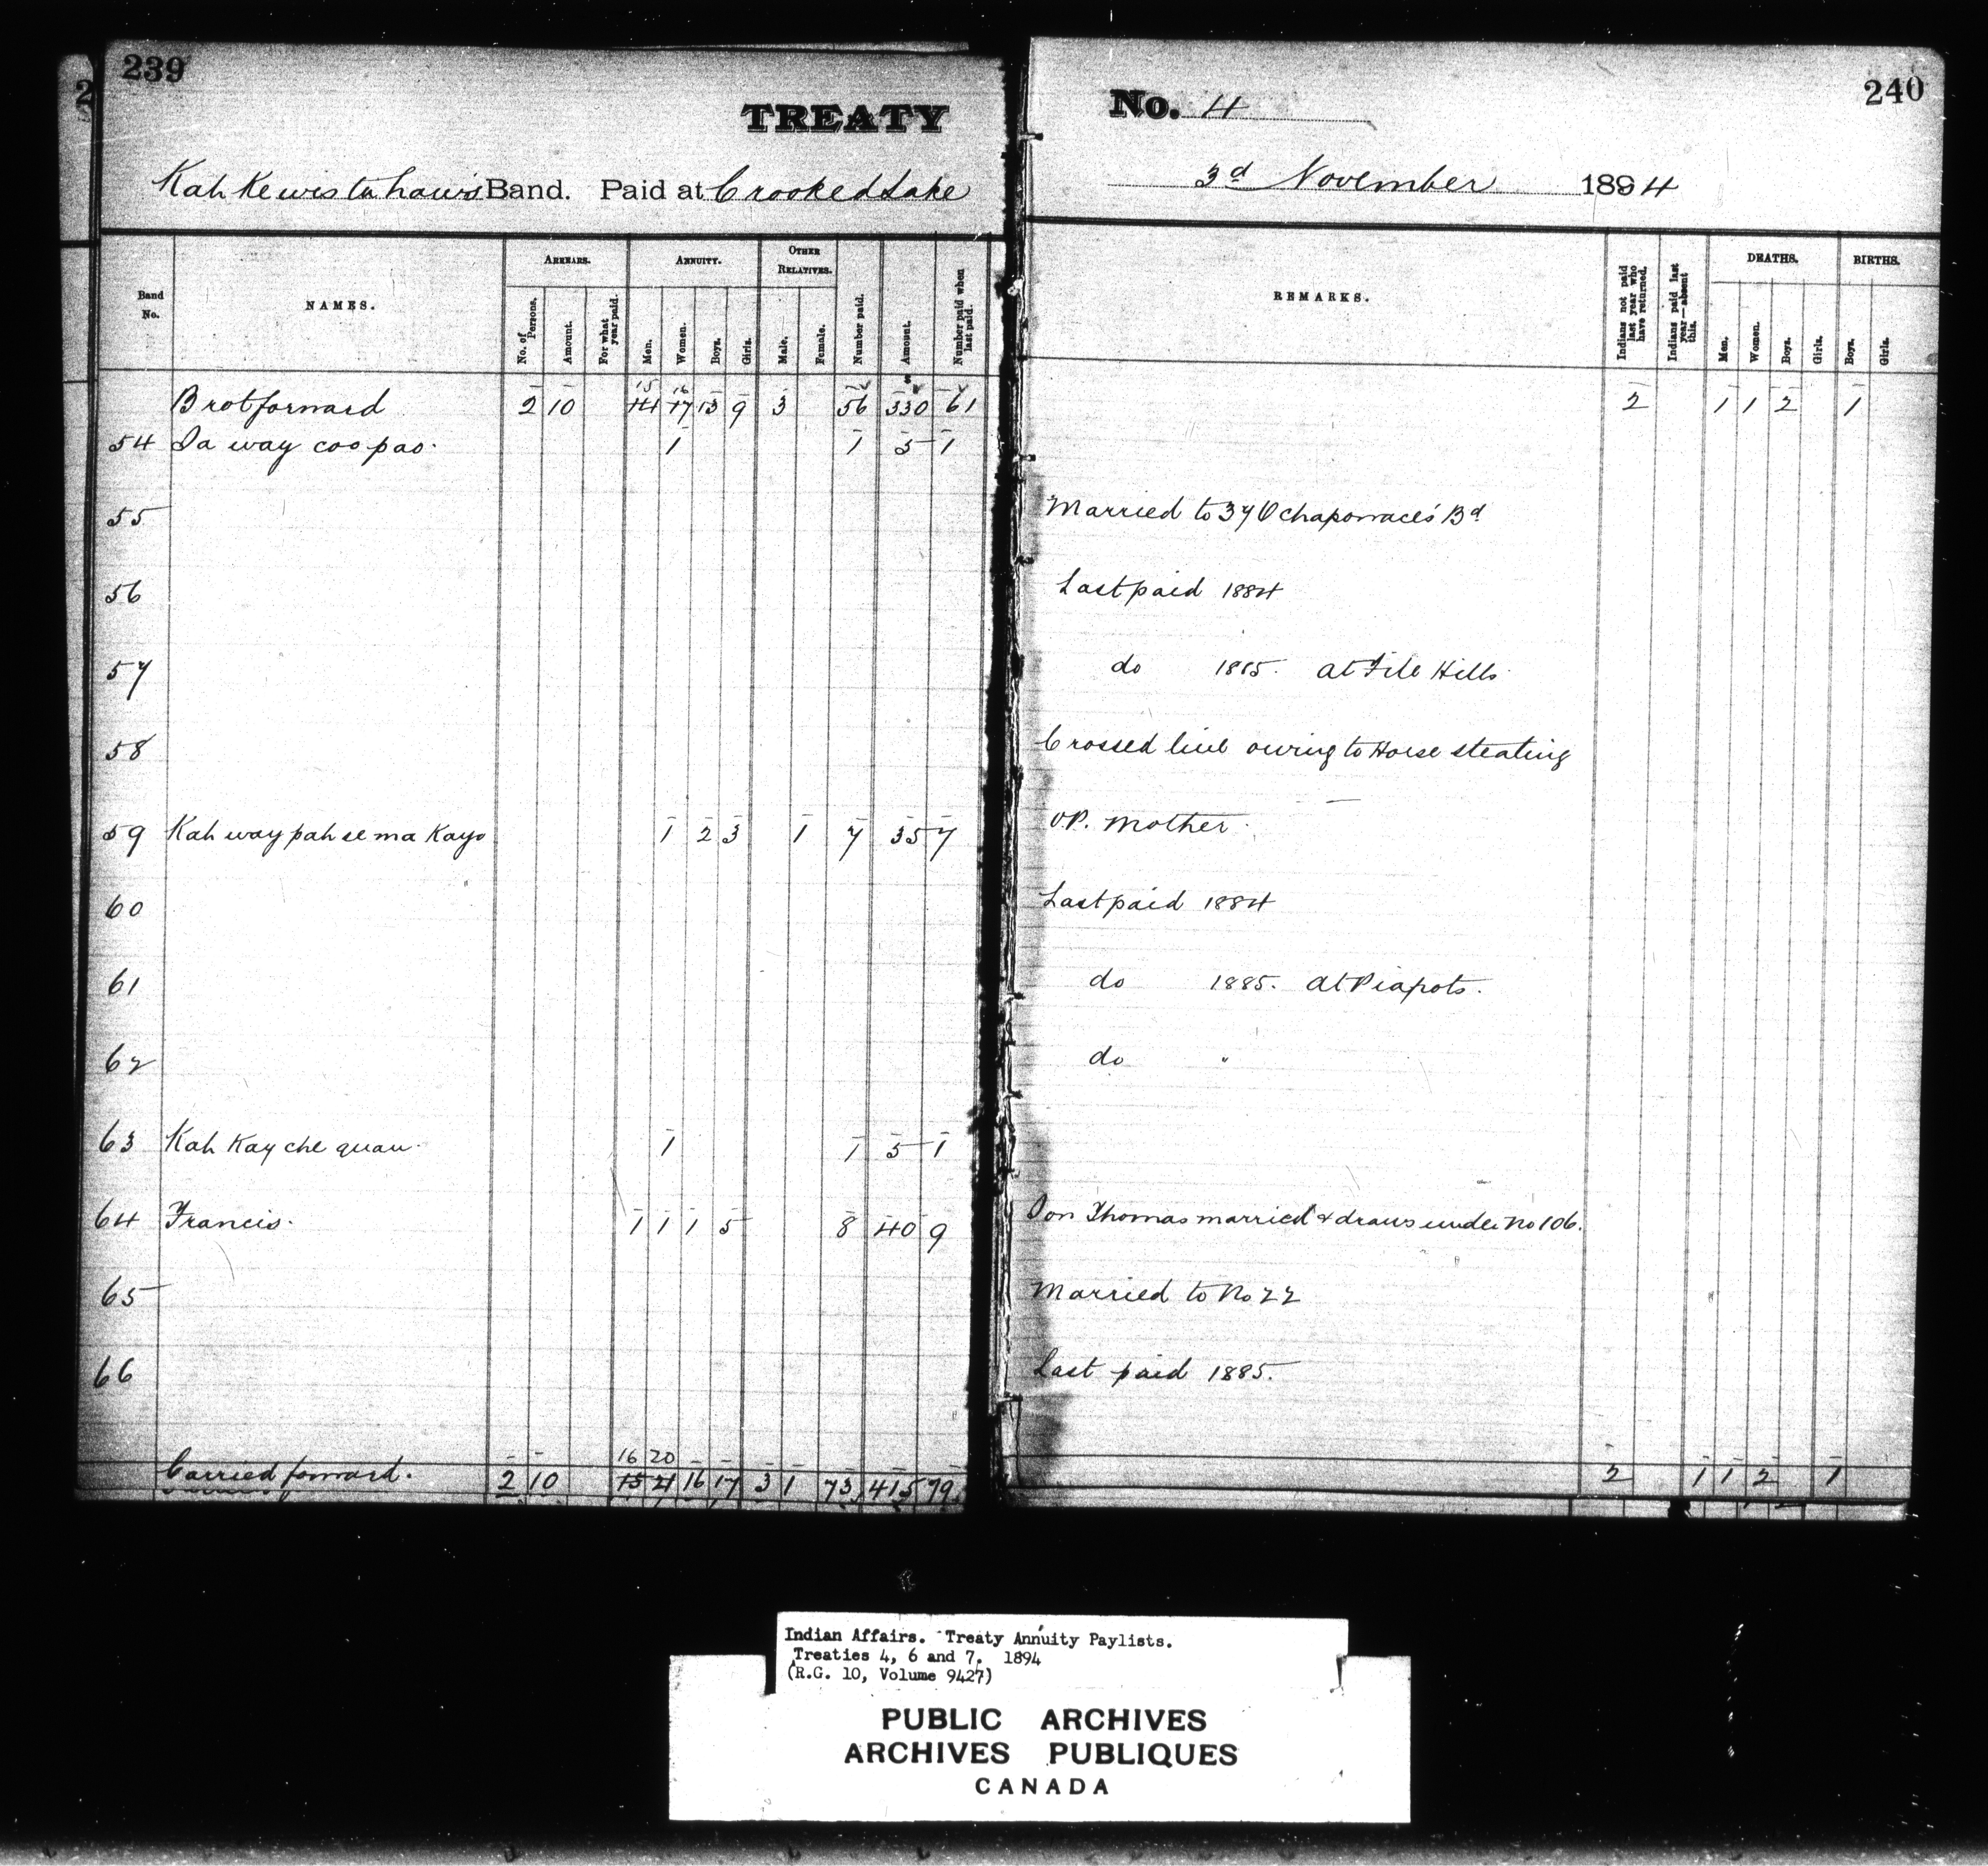 239
TREATY
Kah Ke wis ta haw's Band. Paid at Crooked Lake
No. 4
240
3d November 1894
Band No.
NAMES.
ARREARS.
No. of Persons.
Amount.
For what year paid.
ANNUITY.
Men.
Women.
Boys.
Girls.
OTHER RELATIVES.
Male.
Female.
Number paid.
Amount.
Number paid when last paid.
REMARKS.
Indians not paid last year who have returned.
Indians paid last year—absent this.
DEATHS.
Men.
Women.
Boys.
Girls.
BIRTHS.
Boys.
Girls.
15 16
Brot forward 2 10 14 17 13 9 3 56 330 61 2 1 1 2 1
54 Sa way coo pas 1 1 5 1
55 Married to 37 Ochapowace's Bd
56 Last paid 1884
57 do 1885. at File Hills
58 Crossed line owing to Horse stealing
59 Kah way pah se ma Kayo 1 2 3 1 7 35 7 O.P. Mother
60 Last paid 1884
61 do 1885. at Piapots.
62 do "
63 Kah Kay che quau 1 1 5 1
64 Francis. 1 1 1 5 8 40 9 Son Thomas married & draws under No 106.
65 Married to No 22
66 Last paid 1885.
16 20
Carried forward. 2 10 15 21 16 17 3 1 73 415 79 2 1 1 2 1
Indian Affairs. Treaty Annuity Paylists.
Treaties 4, 6 and 7. 1894
(R.G. 10, Volume 9427)
PUBLIC ARCHIVES
ARCHIVES PUBLIQUES
CANADA